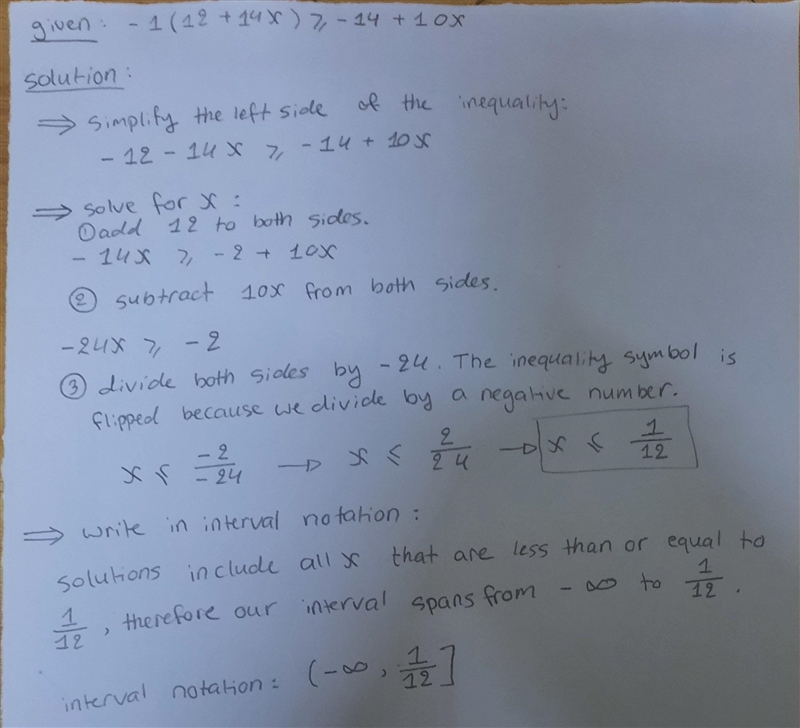 given: -1(12+14x) ⩾ -14 + 10x
solution:
⇒ simplify the left side of the inequality:
-12 - 14x ⩾ -14 + 10x
⇒ solve for x:
① add 12 to both sides.
- 14x ⩾ -2 + 10x
② subtract 10x from both sides.
-24x ⩾ -2
③ divide both sides by -24. The inequality symbol is
flipped because we divide by a negative number.
x ⩽ -2/-24 → x ⩽ 2/24 → x ⩽ 1/12
⇒ write in interval notation:
solutions include all x that are less than or equal to
1/12, therefore our interval spans from -∞ to 1/12.
interval notation: (-∞, 1/12]